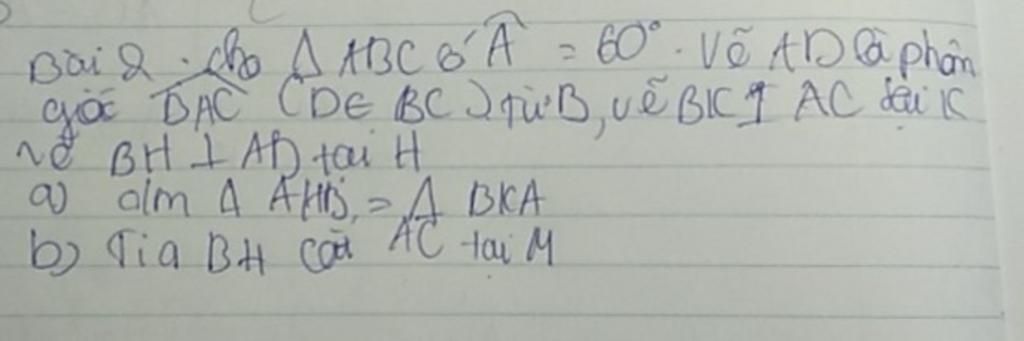 Bài 2. cho Δ ABC có Â = 60°. Vẽ AD là phân
giác BAC (D∈ BC) từ B, vẽ BK ⊥ AC tại K
vẽ BH ⊥ AD tại H
a) c/m Δ AHB = Δ BKA
b) Tia BH cắt AC tại M